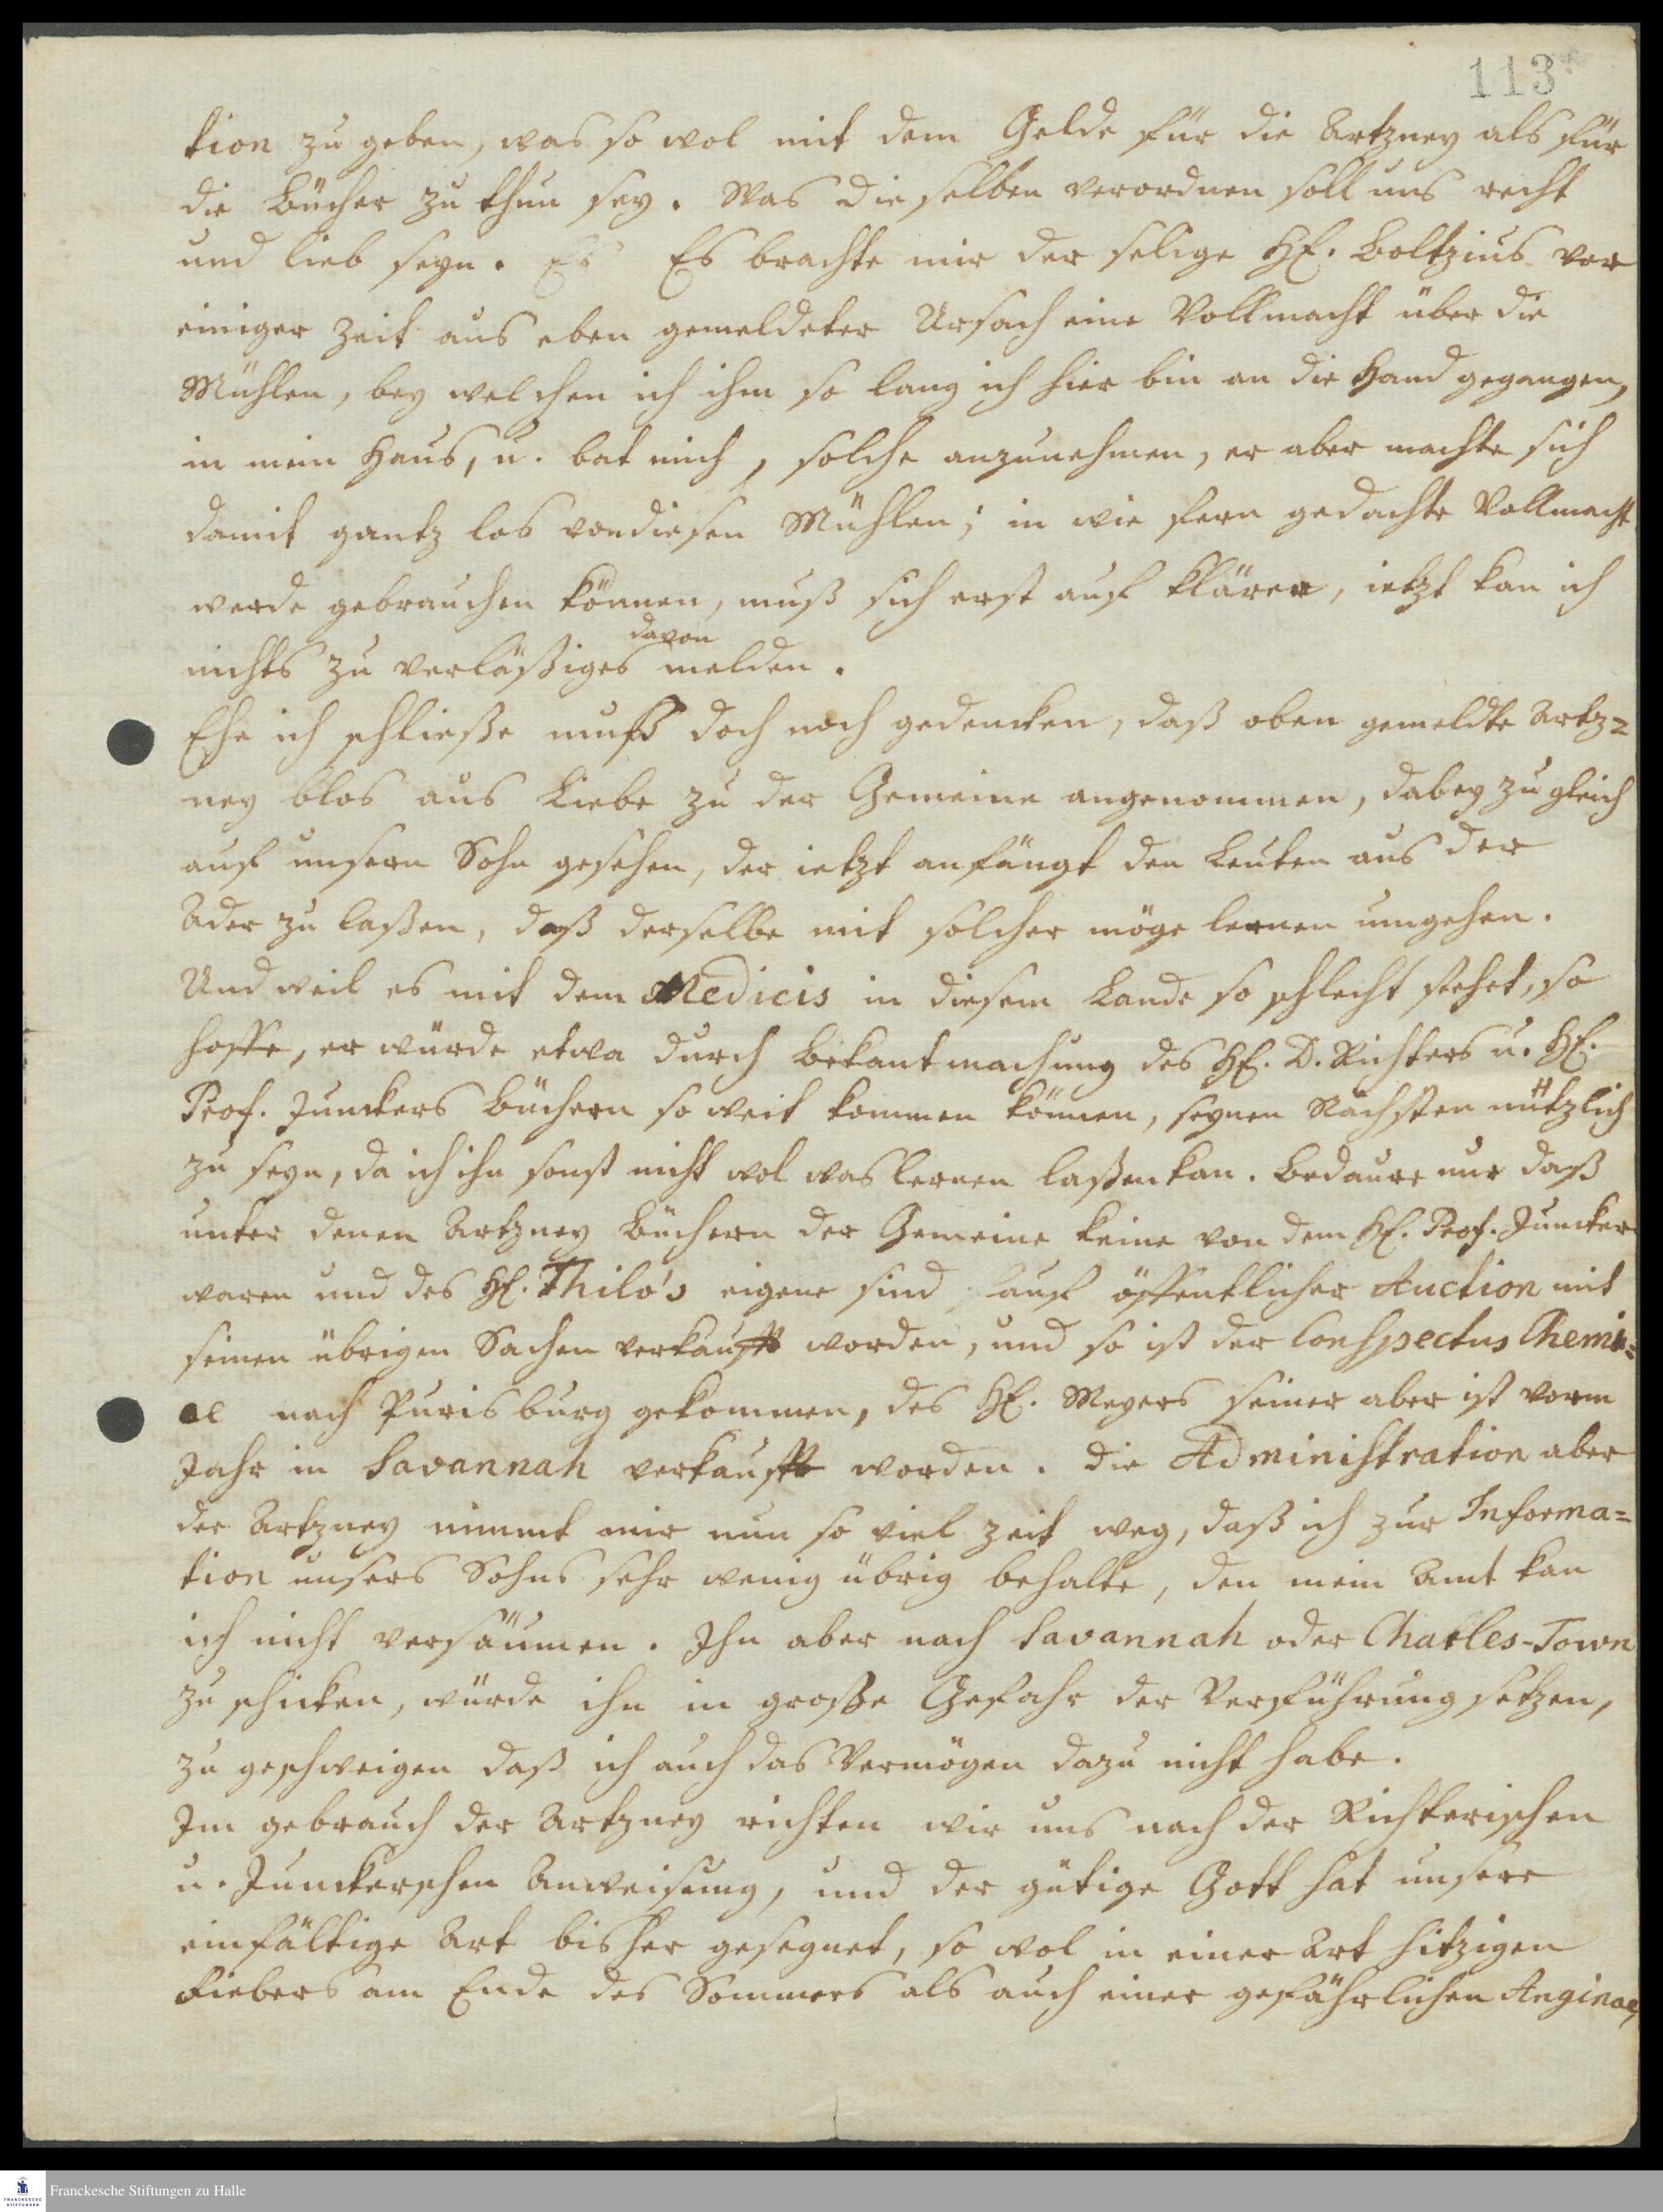 113
tion zu geben, was so wol mit dem Gelde für die Artzney als für
die Bücher zu thun sey. Was dieselben verordnen soll uns recht
und lieb seyn. Es brachte mir der selige H. Boltzius vor
einiger Zeit aus eben gemeldeter Ursach eine Vollmacht über die
Mühlen, bey welchen ich ihm so lang ich hier bin an die Hand gegangen,
in mein Haus, u. bat mich, solche anzunehmen, er aber machte sich
damit gantz los von diesen Mühlen; in wie fern gedachte Vollmacht
werde gebrauchen können, muß sich erst auf klären, ietzt kan ich
nichts zu verläßiges davon melden.
Ehe ich schließe muß doch noch gedencken, daß oben gemeldte Artz=
ney blos aus Liebe zu der Gemeine angenommen, dabey zu gleich
auf unsern Sohn gesehen, der ietzt anfängt den Leuten aus der
Ader zu laßen, daß derselbe mit solcher möge lernen umgehen.
Und weil es mit dem Medicis in diesem Lande so schlecht stehet, so
hoffe, er würde etwa durch Bekantmachung des H. D. Richters u. H.
Prof. Junckers Büchern so weit kommen können, seynen Nächsten nützlich
zu seyn, da ich ihn sonst nicht wol was lernen laßen kan. Bedaure nur daß
unter denen Artzney Büchern der Gemeine keine von dem H. Prof. Juncker
waren und des H. Thilo's eigene sind auf öffentlicher Auction mit
seinen übrigen Sachen verkaufft worden, und so ist der Conspectus Chemi=
ae nach Purisburg gekommen, des H. Meyers seiner aber ist vorm
Jahr in Savannah verkaufft worden. Die Administration aber
der Artzney nimmt mir nun so viel Zeit weg, daß ich zur Informa=
tion unsers Sohns sehr wenig übrig behalte, den mein Amt kan
ich nicht versäumen. Ihn aber nach Savannah oder Charles-Town
zu schicken, würde ihn in große Gefahr der Verführung setzen,
zu geschweigen daß ich auch das Vermögen dazu nicht habe.
Im gebrauch der Artzney richten wir uns nach der Richterischen
u. Junckerschen Anweisung, und der gütige Gott hat unsere
einfältige Art bisher gesegnet, so wol in einer Art hitzigen
Fiebers am Ende des Sommers als auch einer gefährlichen Anginae,
Franckesche Stiftungen zu Halle
FRANCKESCHE
STIFTUNGEN